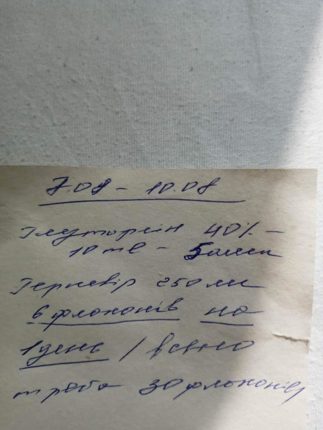 7.08 - 10.08
Глутаргін 40% -
10 ml - 5 амп
250 мл
6 флаконів на
1 день / всього
треба 30 флаконів